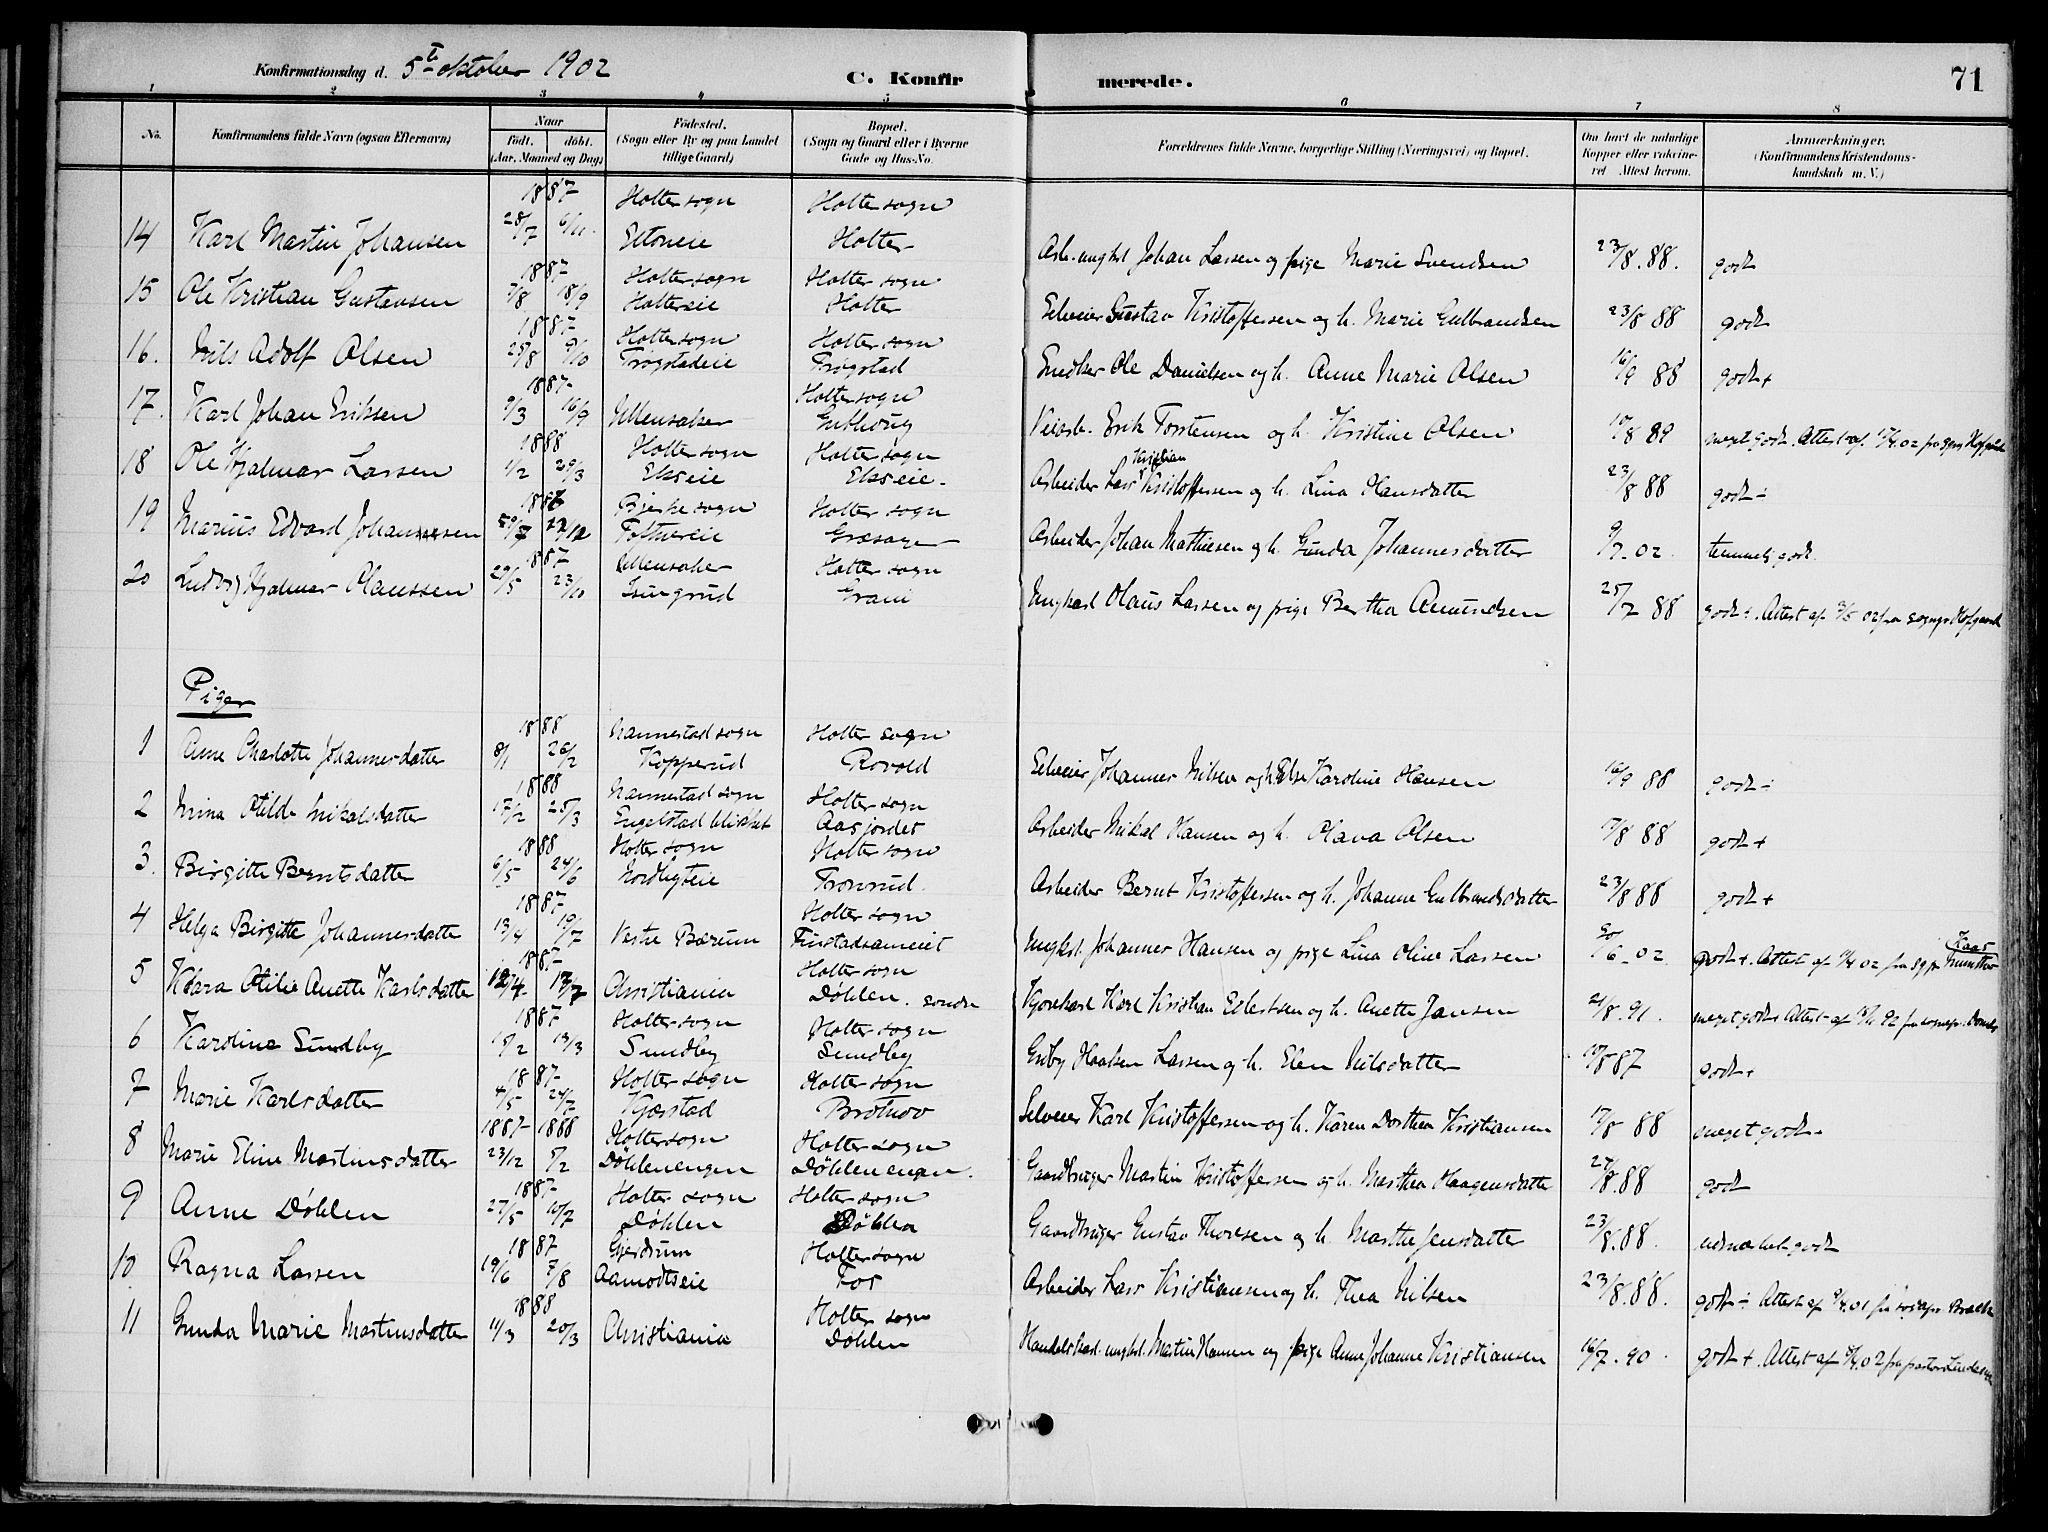 Konfirmationsdag d. 5te oktober 1902 C. Konfirmerede. 71
1 2 3 4 5 6 7 8
No. Konfirmandens fulde Navn (ogsaa Efternavn) Naar født. døbt. (Aar, Maaned og Dag) Fødested. (Sogn eller By og paa Landet tillige Gaard) Bopæl. (Sogn og Gaard eller i Byerne Gade og Hus-No. Forældrenes fulde Navne, borgerlige Stilling (Næringsvei) og Bopæl. Om havt de naturlige Kopper eller vakcineret Attest herom. Anmærkninger. (Konfirmandens Kristendomskundskab m. V.)
1887 Holter sogn Holter sogn
14 Karl Martin Johansen 28/7 6/11. Eltoneie Holter Arb. ungkl Johan Larsen og pige Marie Svendsen 23/8.88. godt
1887 Holter sogn Holter sogn
15 Ole Kristian Gustavsen 7/8 18/9 Holtereie Holter Selveier Gustav Kristoffersen og h. Marie Gulbrandsen 23/8 88 godt
1887 Holter sogn Holter sogn
16. Nils Adolf Olsen 25/8 9/10 Trøgstadeie Trøgstad Snedker Ole Danielsen og h. Anne Marie Olsen 16/9 88 godt+
1887 Holter sogn
17. Karl Johan Eriksen 9/3 16/9 Ullensaker Veiarb. Erik Torstensen og h. Kristine Olsen 10/8 89 meget godt. Attest af
1888 Holter sogn Holter sogn
18 Ole Hjalmar Larsen 1/2 29/3 Ekseie Ekseie. Arbeider Lars Kristian Kristoffersen og h. Lina Hansdatter 23/8 88 godt÷
Bjerke sogn Holter sogn
19 Marius Edvard Johansen Arbeider Johan Mathiesen og h. Gunda Johannesdatter 9/7 02. temmelig godt.
1887 Ullensaker Holter sogn
20 Ludvig Hjalmar Olaussen 29/5 23/10 Isingrud Grani Ungkarl Olaus Larsen og pige Bertha Amundsen 25/7 88 godt÷. Attest af 3/5 02 fra sognepr Hofgaard
Piger
1888 Nannestad sogn Holter sogn
1 Anne Charlotte Johannesdatter 8/1 26/2 Kopperud Rovold Selveier Johannes Nilsen og h. Else Karoline Hansen 16/9 88 godt÷
1888 Nannestad sogn Holter sogn
2 Mina Otilde Nikalsdatter 17/2 25/3 Engelstad Aasjordet Arbeider Nikal Hansen og h. Olava Olsen 17/8 88 godt+
1888 Holter sogn Holter sogn
3. Birgitte Berntsdatter 6/5 24/6 Nordbyeie Tronrud. Arbeider Bernt Kristoffersen og h. Johanne Gulbrandsdatter 23/8 88 godt+
1887 Holter sogn
4 Helga Birgitte Johannesdatter 13/4 19/7 Vestre Bærum Finstadsameiet Ungkl. Johannes Hansen og pige Lina Oline Larsen 30/6 02 godt+. Attest af
1887 Holter sogn
5 Klara Otilie Anette Karlsdatter Christiania Døhlen. søndre Kjørekarl Karl Kristian Edlertsen og h. Anette Jansen 21/8.91. meget godt Attest af
1887 Holter sogn Holter sogn
6 Karoline Sundby 13/3 Sundby Sundby Gaardbr Haaken Larsen og h. Elen Nilsdatter 87 godt+
1887 Holter sogn Holter sogn
7 Marie Karlsdatter 4/5 24/7 Kjærstad Brotnov Selveier Karl Kristoffersen og h. Karen Dorthea Kristiansen 17/8 88 meget godt
1887 1888 Holter sogn Holter sogn
8 Marie Eline Martinsdatter 23/12 5/2 Døhlenengen Døhlenengen. Gaardbruger Martin Kristoffersen og h. Marthea Haagensdatter 27/8.88 godt
1887 Holter sogn Holter sogn
9 Anne Døhlen 27/5 10/7 Døhlen Døhlen Gaardbruger Gustav Thoresen og h. Marthe Jensdatter 23/8.88. udmærket godt
1887 Gjerdrum Holter sogn
10. Ragna Larsen 19/6 7/8 Aamodtseie Fos Arbeider Lars Kristiansen og h. Thea Nilsen 23/8.88. godt÷ Attest af
1888 Holter sogn
11 Gunda Marie Martinsdatter 11/3 20/3 Christiania Døhlen Handelskarl ungkl. Martin Hansen og pige Anne Johanne Kristiansen 16/7.90. godt+. Attest af